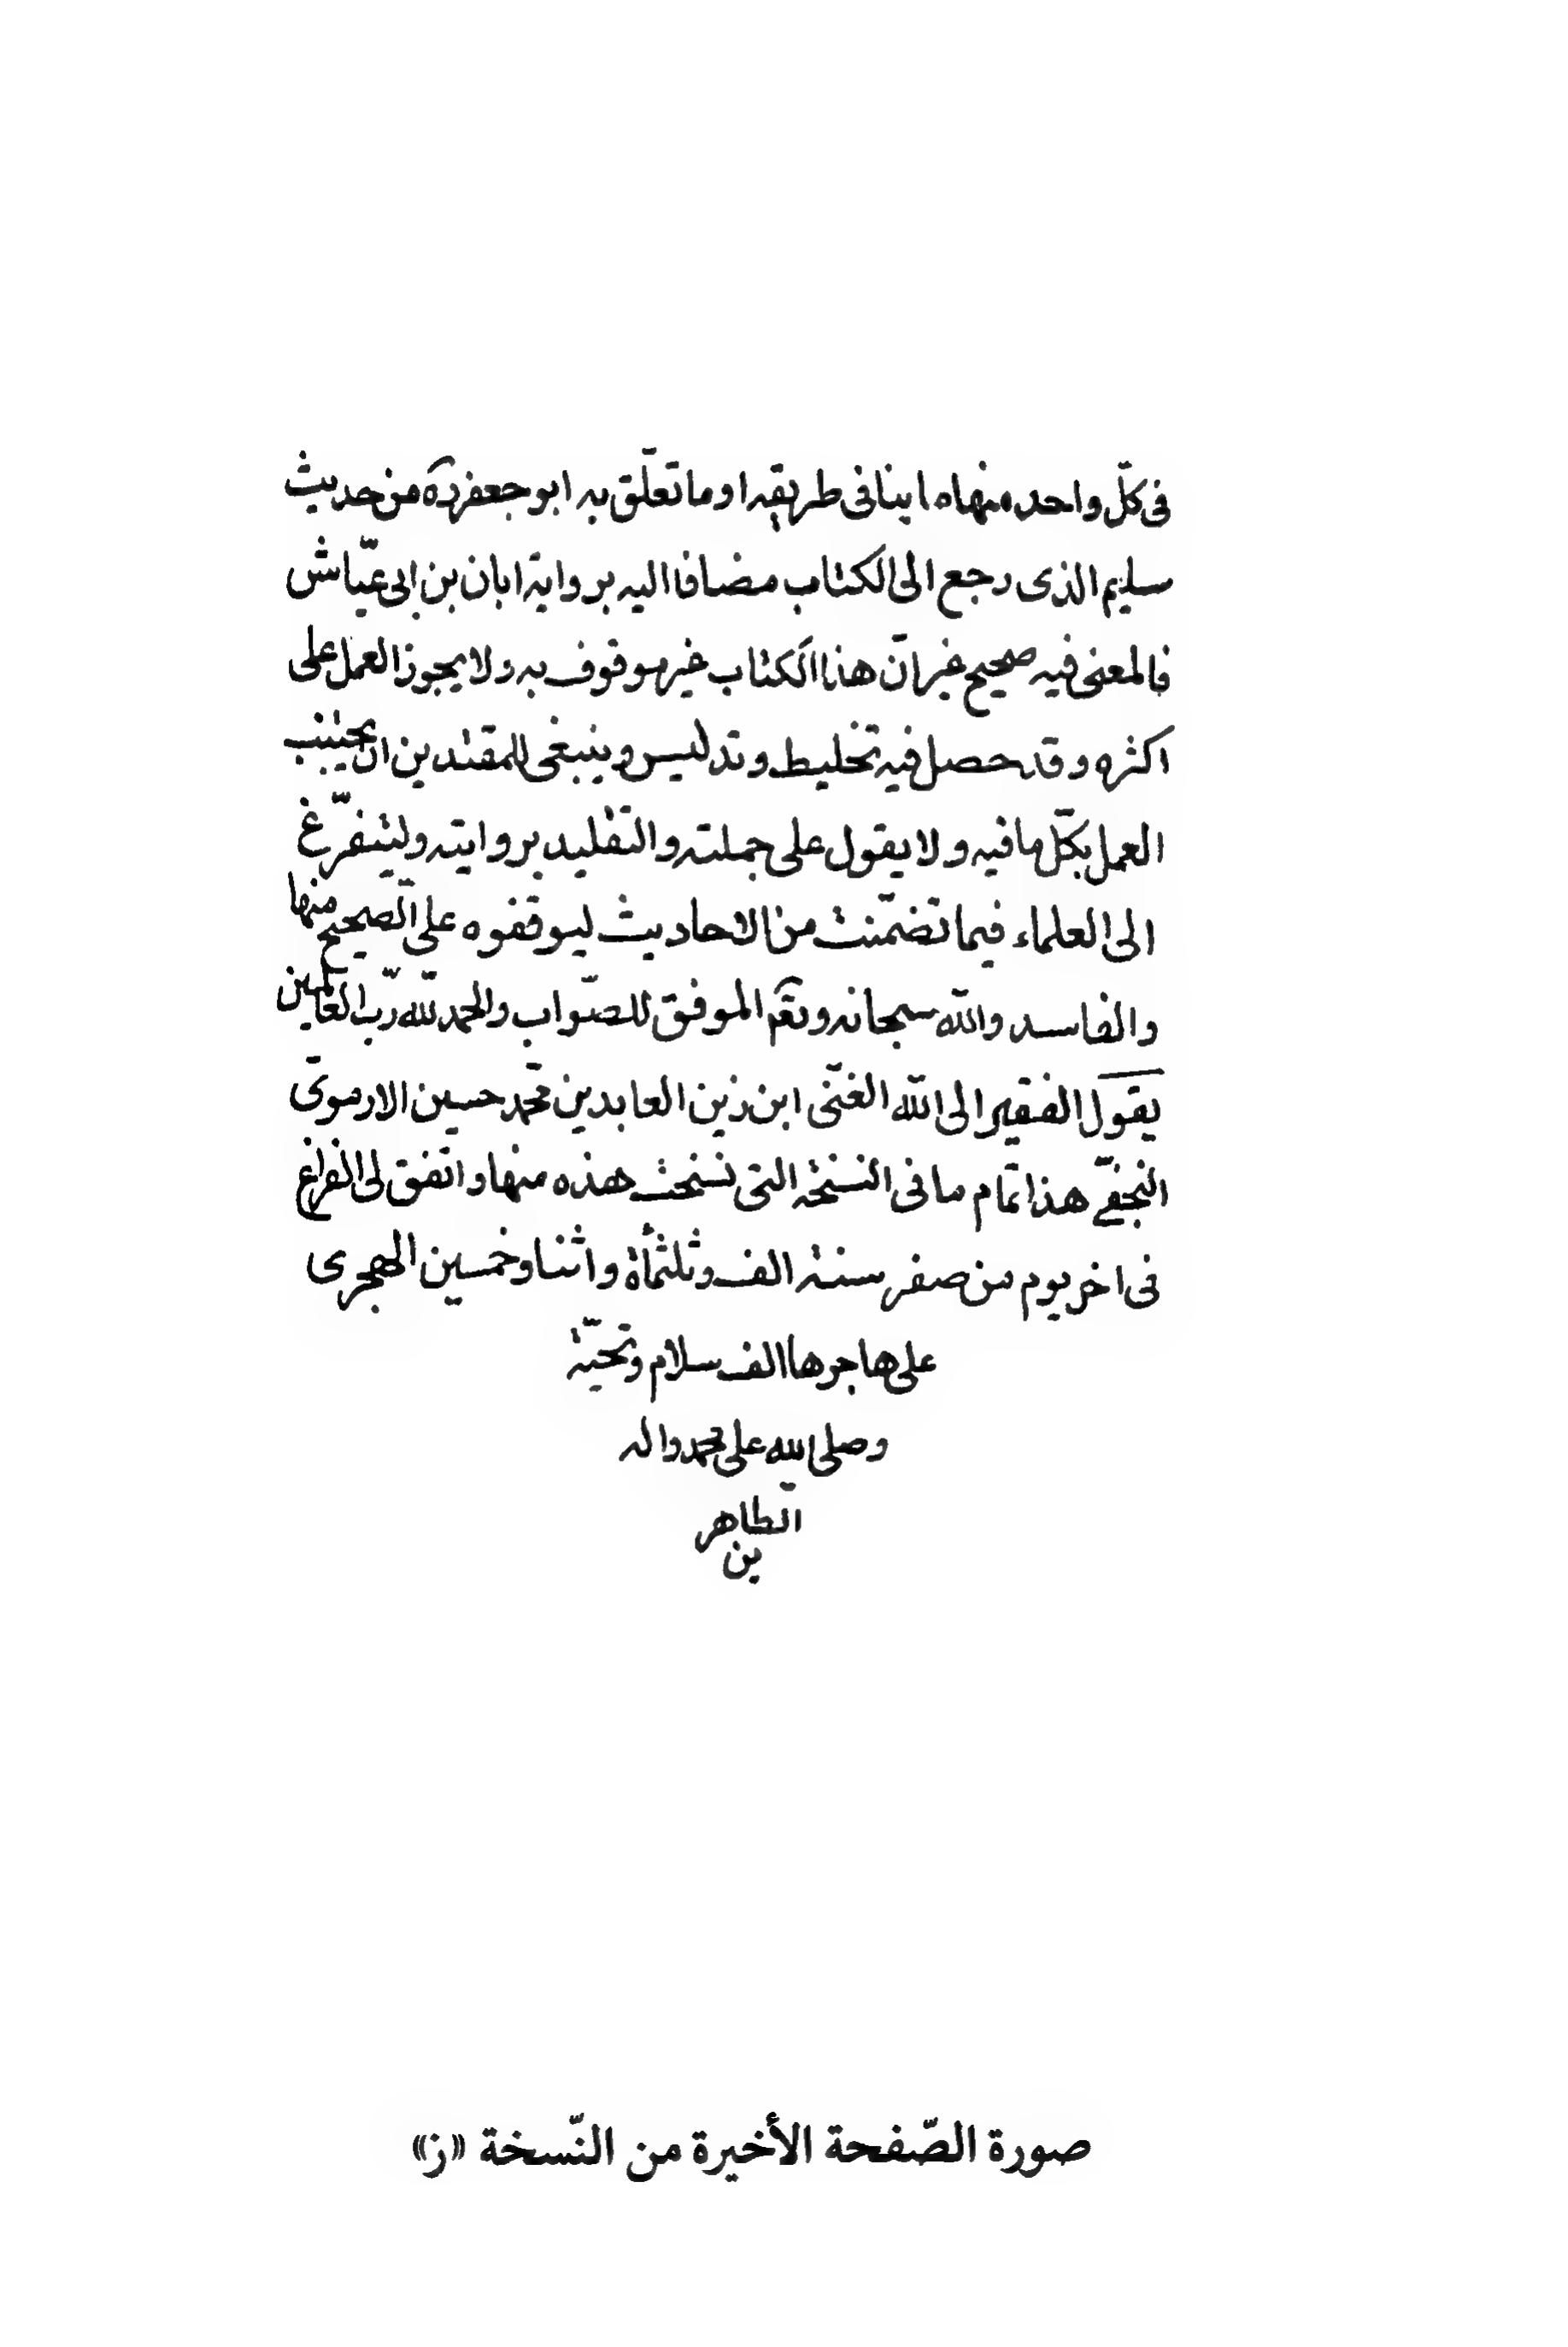 فی کلّ واحده منهاه ابنا فی طریقه او ما تعلّق به ابو جعفر ره من حدیث
سلیم الذی رجع الی الکتاب مضافا الیه بروایة ابان بن ابی عیّاش
فالمعنی فیه صحیح غیر انّ هذا الکتاب غیر موقوف به ولا یجوز العمل علی
اکثره وقد حصل فیه تخلیط وتدلیس وینبغی للمقتدین ان یجتنب
العمل بکلّ ما فیه ولا یقول علی جملته والتقلید بروایته ولیتفرّغ
الی العلماء فیما تضمّنت من الاحادیث لیوقفوه علی الصّحیح منها
والفاسد والله سبحانه وتعم الموفق للصّواب والحمد للّه ربّ العالمین
یقول الفقیر الی اللّه الغنّی ابن زین العابدین محّمد حسین الارمویّ
النجفیّ هذا تمام ما فی النسخة التی نسخت هذه منها واتفق لی الفراغ
فی اخر یوم من صفر سنة الف وثلثمأة واثنا وخمسین الهجری
علی هاجرها الف سلام وتحیّة
وصلی الله علی محمد واله
الطّاهر
ین
صورة الصّفحة الأخيرة من النّسخة «ز»